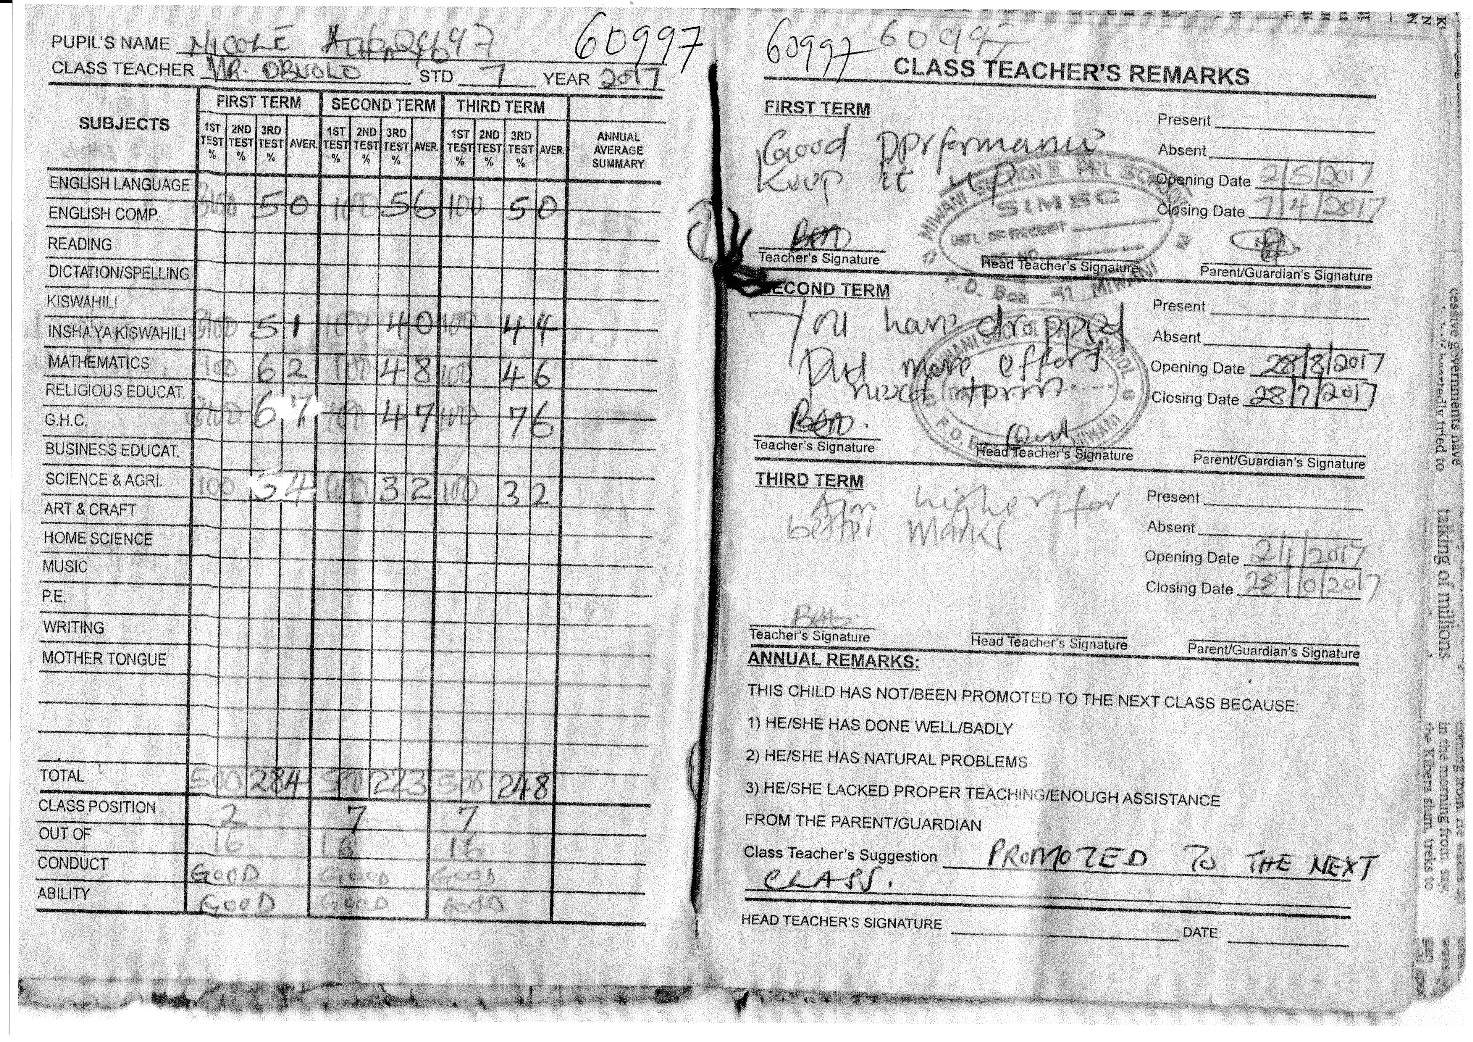 PUPIL'S NAME NICOLE 60997
CLASS TEACHER MR. OBUOLO STD 7 YEAR 2017
SUBJECTS FIRST TERM SECOND TERM THIRD TERM ANNUAL AVERAGE SUMMARY
1ST TEST % 2ND TEST % 3RD TEST % AVER. 1ST TEST % 2ND TEST % 3RD TEST % AVER. 1ST TEST % 2ND TEST % 3RD TEST % AVER.
ENGLISH LANGUAGE
ENGLISH COMP. 100 50 100 56 100 50
READING
DICTATION/SPELLING
KISWAHILI
INSHA YA KISWAHILI 100 51 100 40 100 44
MATHEMATICS 100 62 100 48 100 46
RELIGIOUS EDUCAT.
G.H.C. 100 67 100 47 100 76
BUSINESS EDUCAT.
SCIENCE & AGRI. 100 34 100 32 100 32
ART & CRAFT
HOME SCIENCE
MUSIC
P.E.
WRITING
MOTHER TONGUE
TOTAL 500 284 500 223 500 248
CLASS POSITION 2 7 7
OUT OF 16 16 16
CONDUCT GOOD GOOD GOOD
ABILITY GOOD GOOD GOOD
60997 60997
CLASS TEACHER'S REMARKS
FIRST TERM
Present
Good performance
Absent
Keep it up
Opening Date 2/5/2017
Closing Date 7/4/2017
SIMBC
DATE OF RECEIPT
P.O. Box 41 MIWANI
Teacher's Signature Head Teacher's Signature Parent/Guardian's Signature
SECOND TERM
Present
You have dropped
Absent
Put more effort
Opening Date 28/8/2017
next term
Closing Date 28/7/2017
Teacher's Signature Head Teacher's Signature Parent/Guardian's Signature
THIRD TERM
Present
Aim higher for
better marks
Absent
Opening Date 2/1/2017
Closing Date 28/10/2017
Teacher's Signature Head Teacher's Signature Parent/Guardian's Signature
ANNUAL REMARKS:
THIS CHILD HAS NOT/BEEN PROMOTED TO THE NEXT CLASS BECAUSE:
1) HE/SHE HAS DONE WELL/BADLY
2) HE/SHE HAS NATURAL PROBLEMS
3) HE/SHE LACKED PROPER TEACHING/ENOUGH ASSISTANCE
FROM THE PARENT/GUARDIAN
Class Teacher's Suggestion PROMOTED TO THE NEXT
CLASS.
HEAD TEACHER'S SIGNATURE DATE
taking of millions